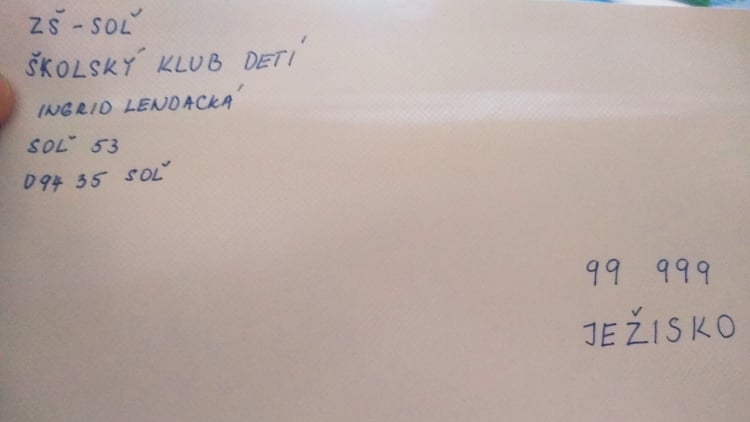 ZŠ - SOĽ
ŠKOLSKÝ KLUB DETÍ
INGRID LENDACKÁ
SOĽ 53
094 35 SOĽ
99 999
JEŽISKO